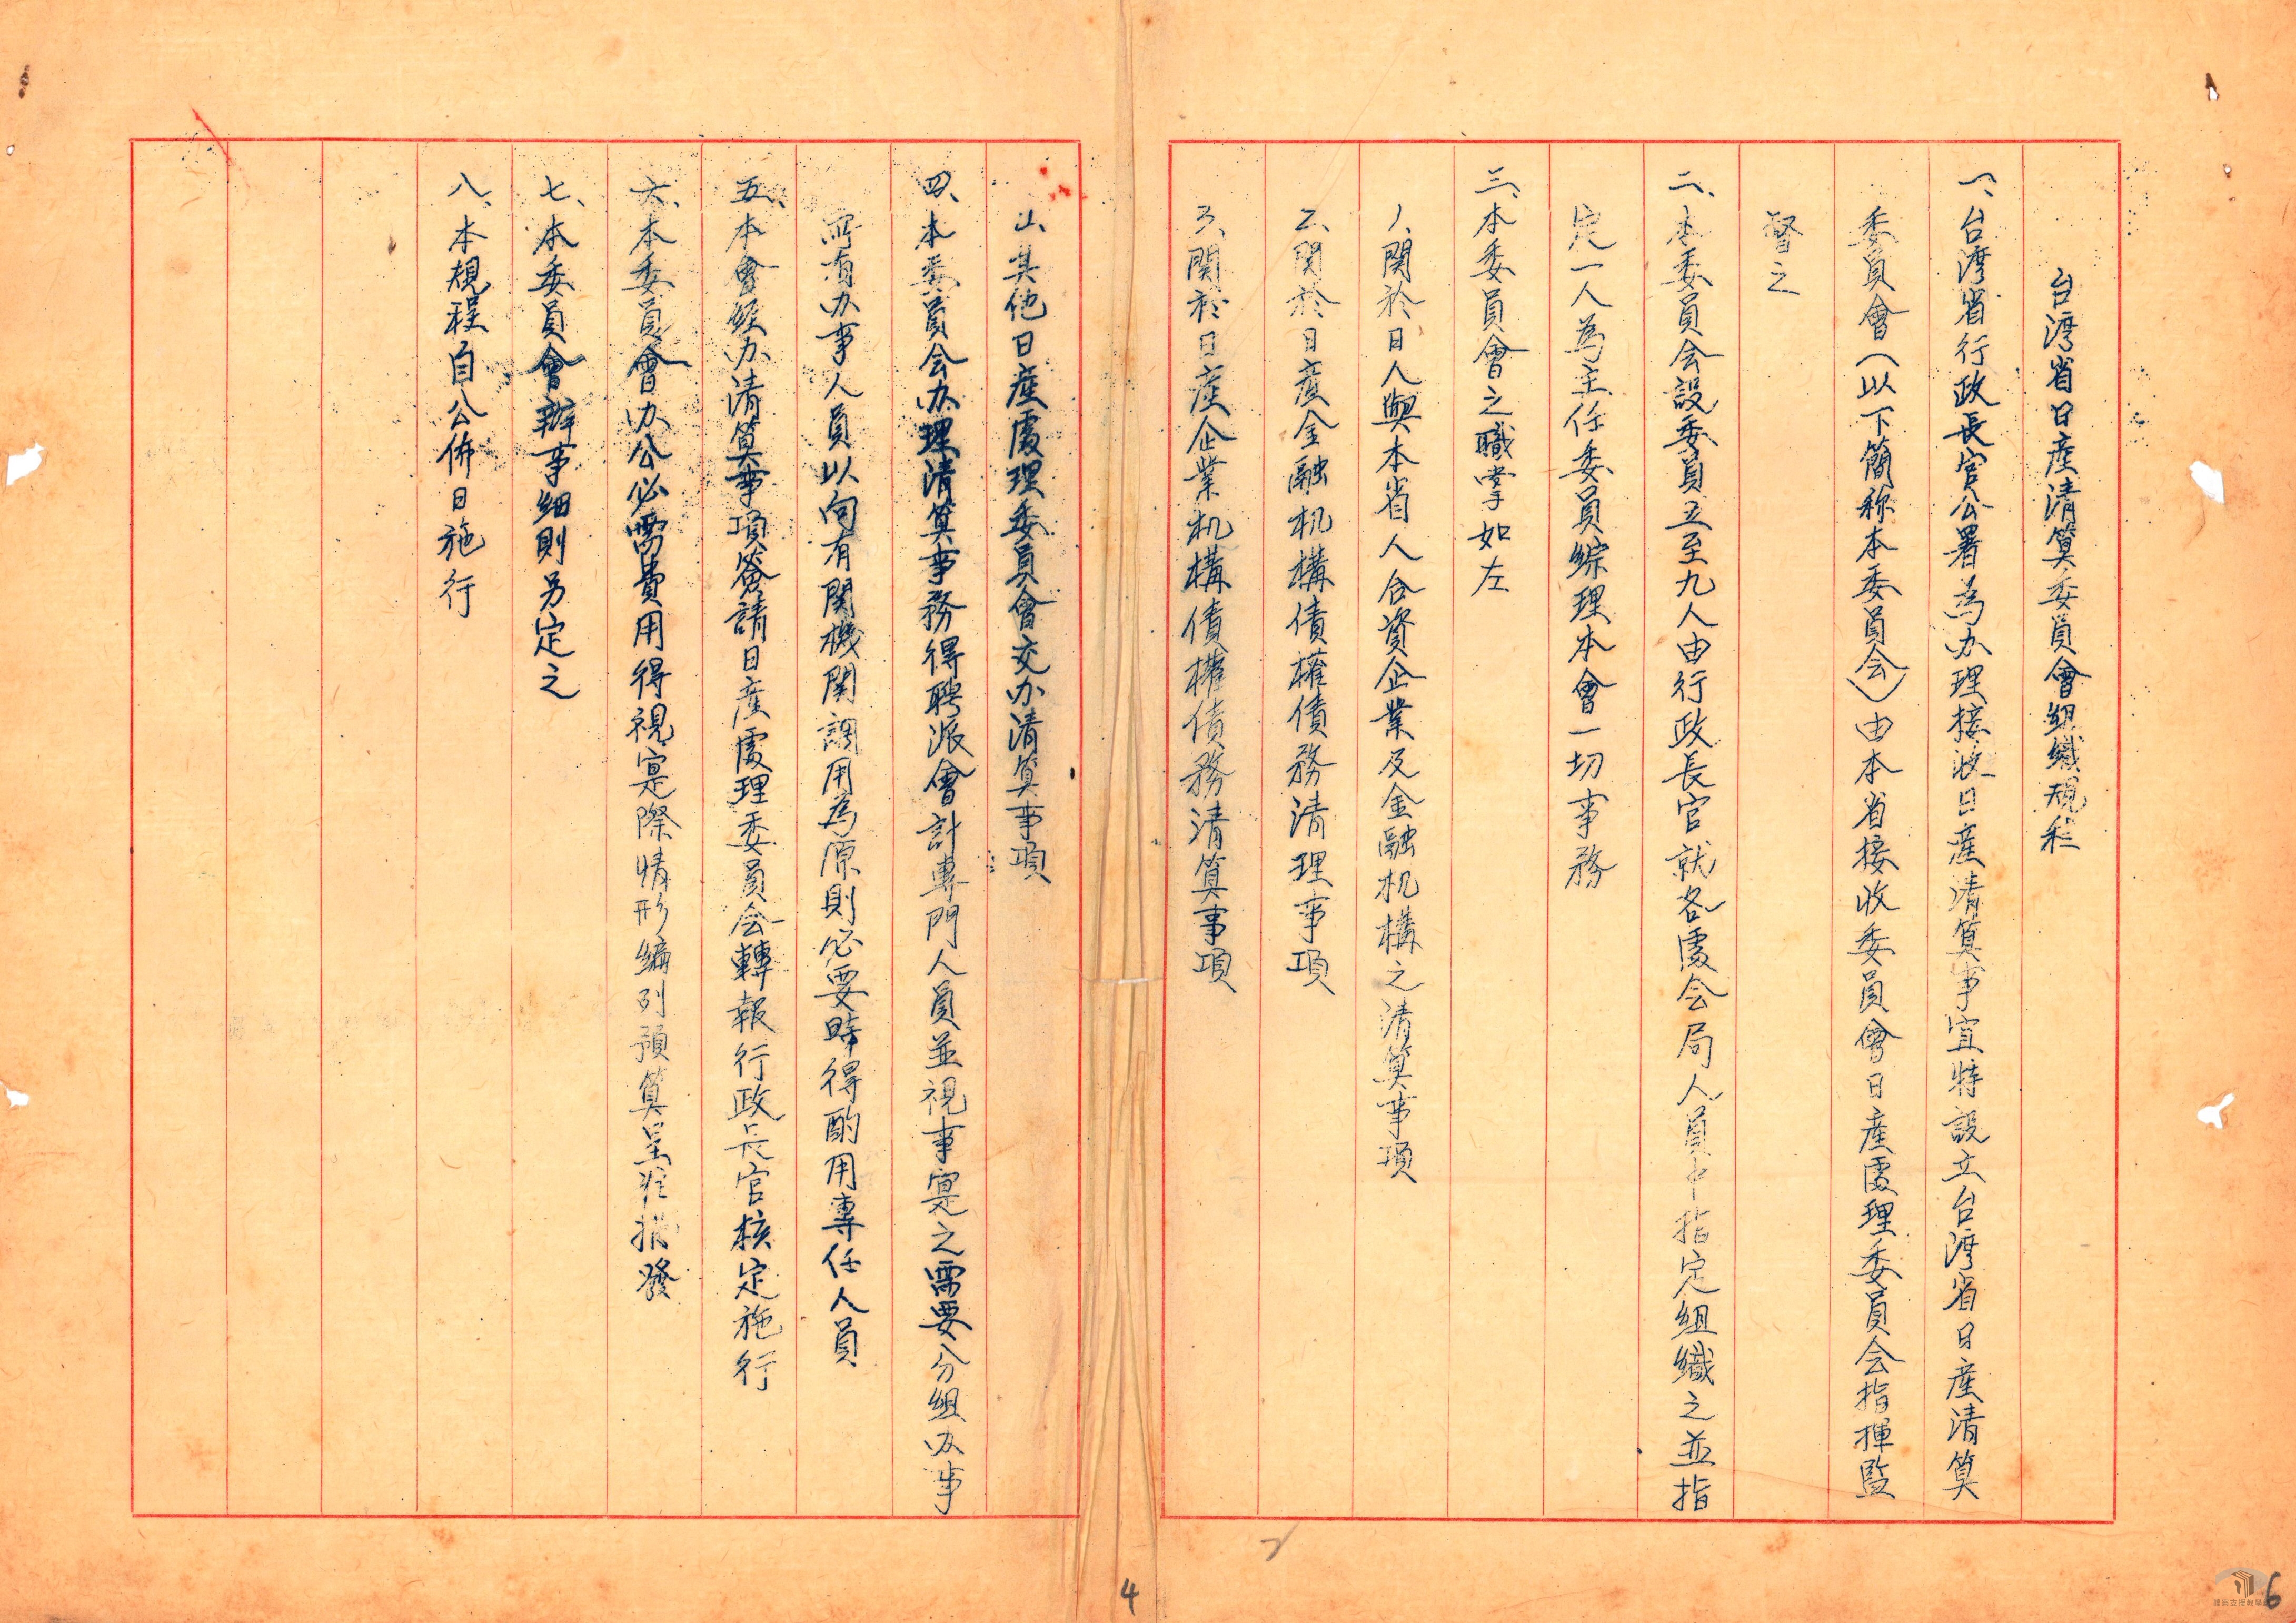 台湾省日產清算委員會組織規程
一、台湾省行政長官公署為办理接收日產清算事宜特設立台湾省日產清算
委員會(以下簡称本委員会)由本省接收委員會日產處理委員会指揮監
督之
二、本委員会設委員五至九人由行政長官就各處会局人員中指定組織之並指
定一人為主任委員綜理本會一切事務
三、本委員會之職掌如左
1、関於日人與本省人合資企業及金融机構之清算事項
2、関於日產金融机構債權債務清理事項
3、関於日產企業机構債權債務清算事項
4、其他日產處理委員會交办清算事項
四、本委員会办理清算事務得聘派會計專門人員並視事寔之需要分組办事
所有办事人員以向有関機関調用為原則必要時得酌用專任人員
五、本會經办清算事項簽請日產處理委員会轉報行政長官核定施行
六、本委員會办公必需費用得視寔際情形編列預算呈准撥發
七、本委員會辦事細則另定之
八、本規程自公佈日施行
4
6